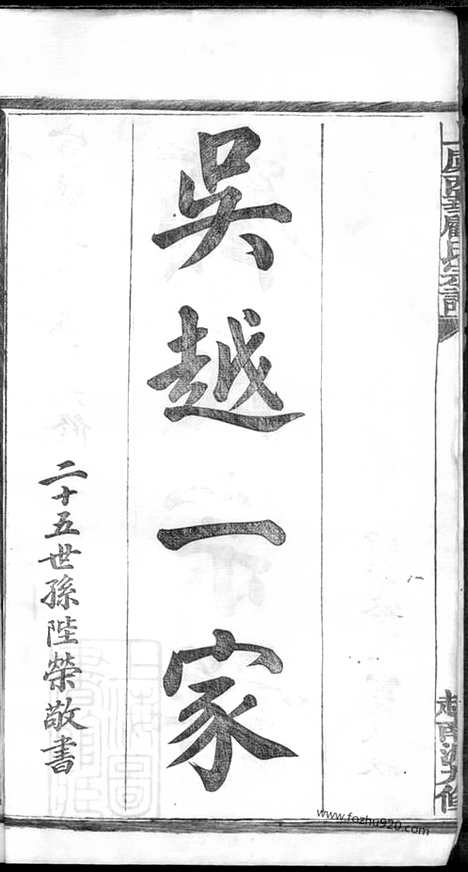 吳越一家
二十五世孫陛榮敬書
顧氏宗譜
www.fozhu920.com